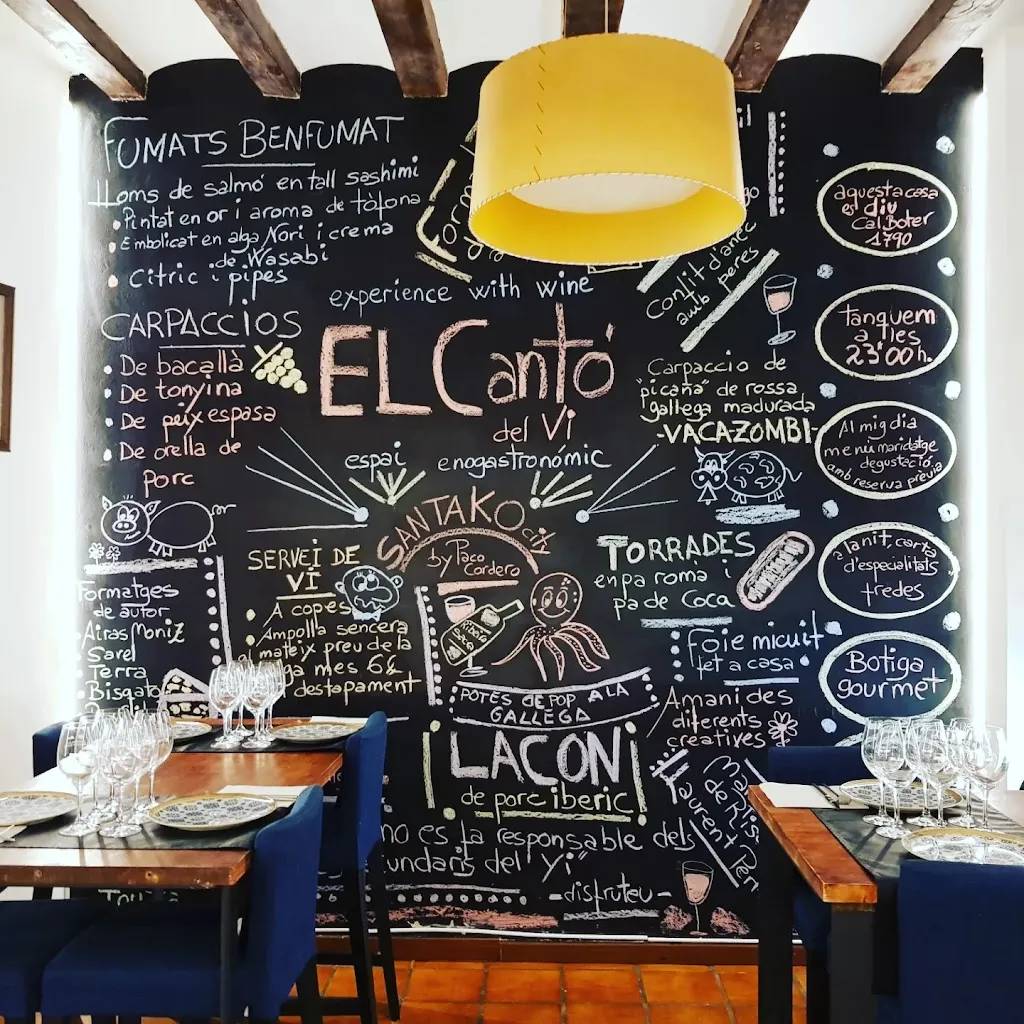 FUMATS BENFUMAT
Lloms de salmó en tall sashimi
• Pintat en or i aroma de tòfona
• Embolicat en alga Nori i crema
de Wasabi
• Citric i pipes
CARPACCIOS
• De bacallà
• De tonyina
• De peix espasa
• De orella de
porc
Formatges
de autor
• Airas Moniz
• Sarel
• Terra
• Bisgato
experience with wine
EL Cantó
del Vi
espai enogastronómic
SANTAKO city
by Paco
Cordero
SERVEI DE
VI
• A copes
• Ampolla sencera
al mateix preu de la
més 6€
destapament
Ribeira
Sacra
POTES DE POP A LA
GALLEGA
LACON
de porc iberic
no es la responsable dels
del Vi"
- disfruteu -
Confit d'ànec
amb peres
Carpaccio de
"picaña" de rossa
gallega madurada
-VACA-ZOMBI-
TORRADES
en pa romà i
pa de Coca
• Foie micuit
fet a casa
Amanides
diferents
creatives
Laurent
aquesta casa
es diu
Cal Boter
1790
Tanquem
a les
23'00h.
Al mig dia
menú maridatge
degustació
amb reserva prèvia
a la nit, carta
d'especialitats
fredes
Botiga
gourmet